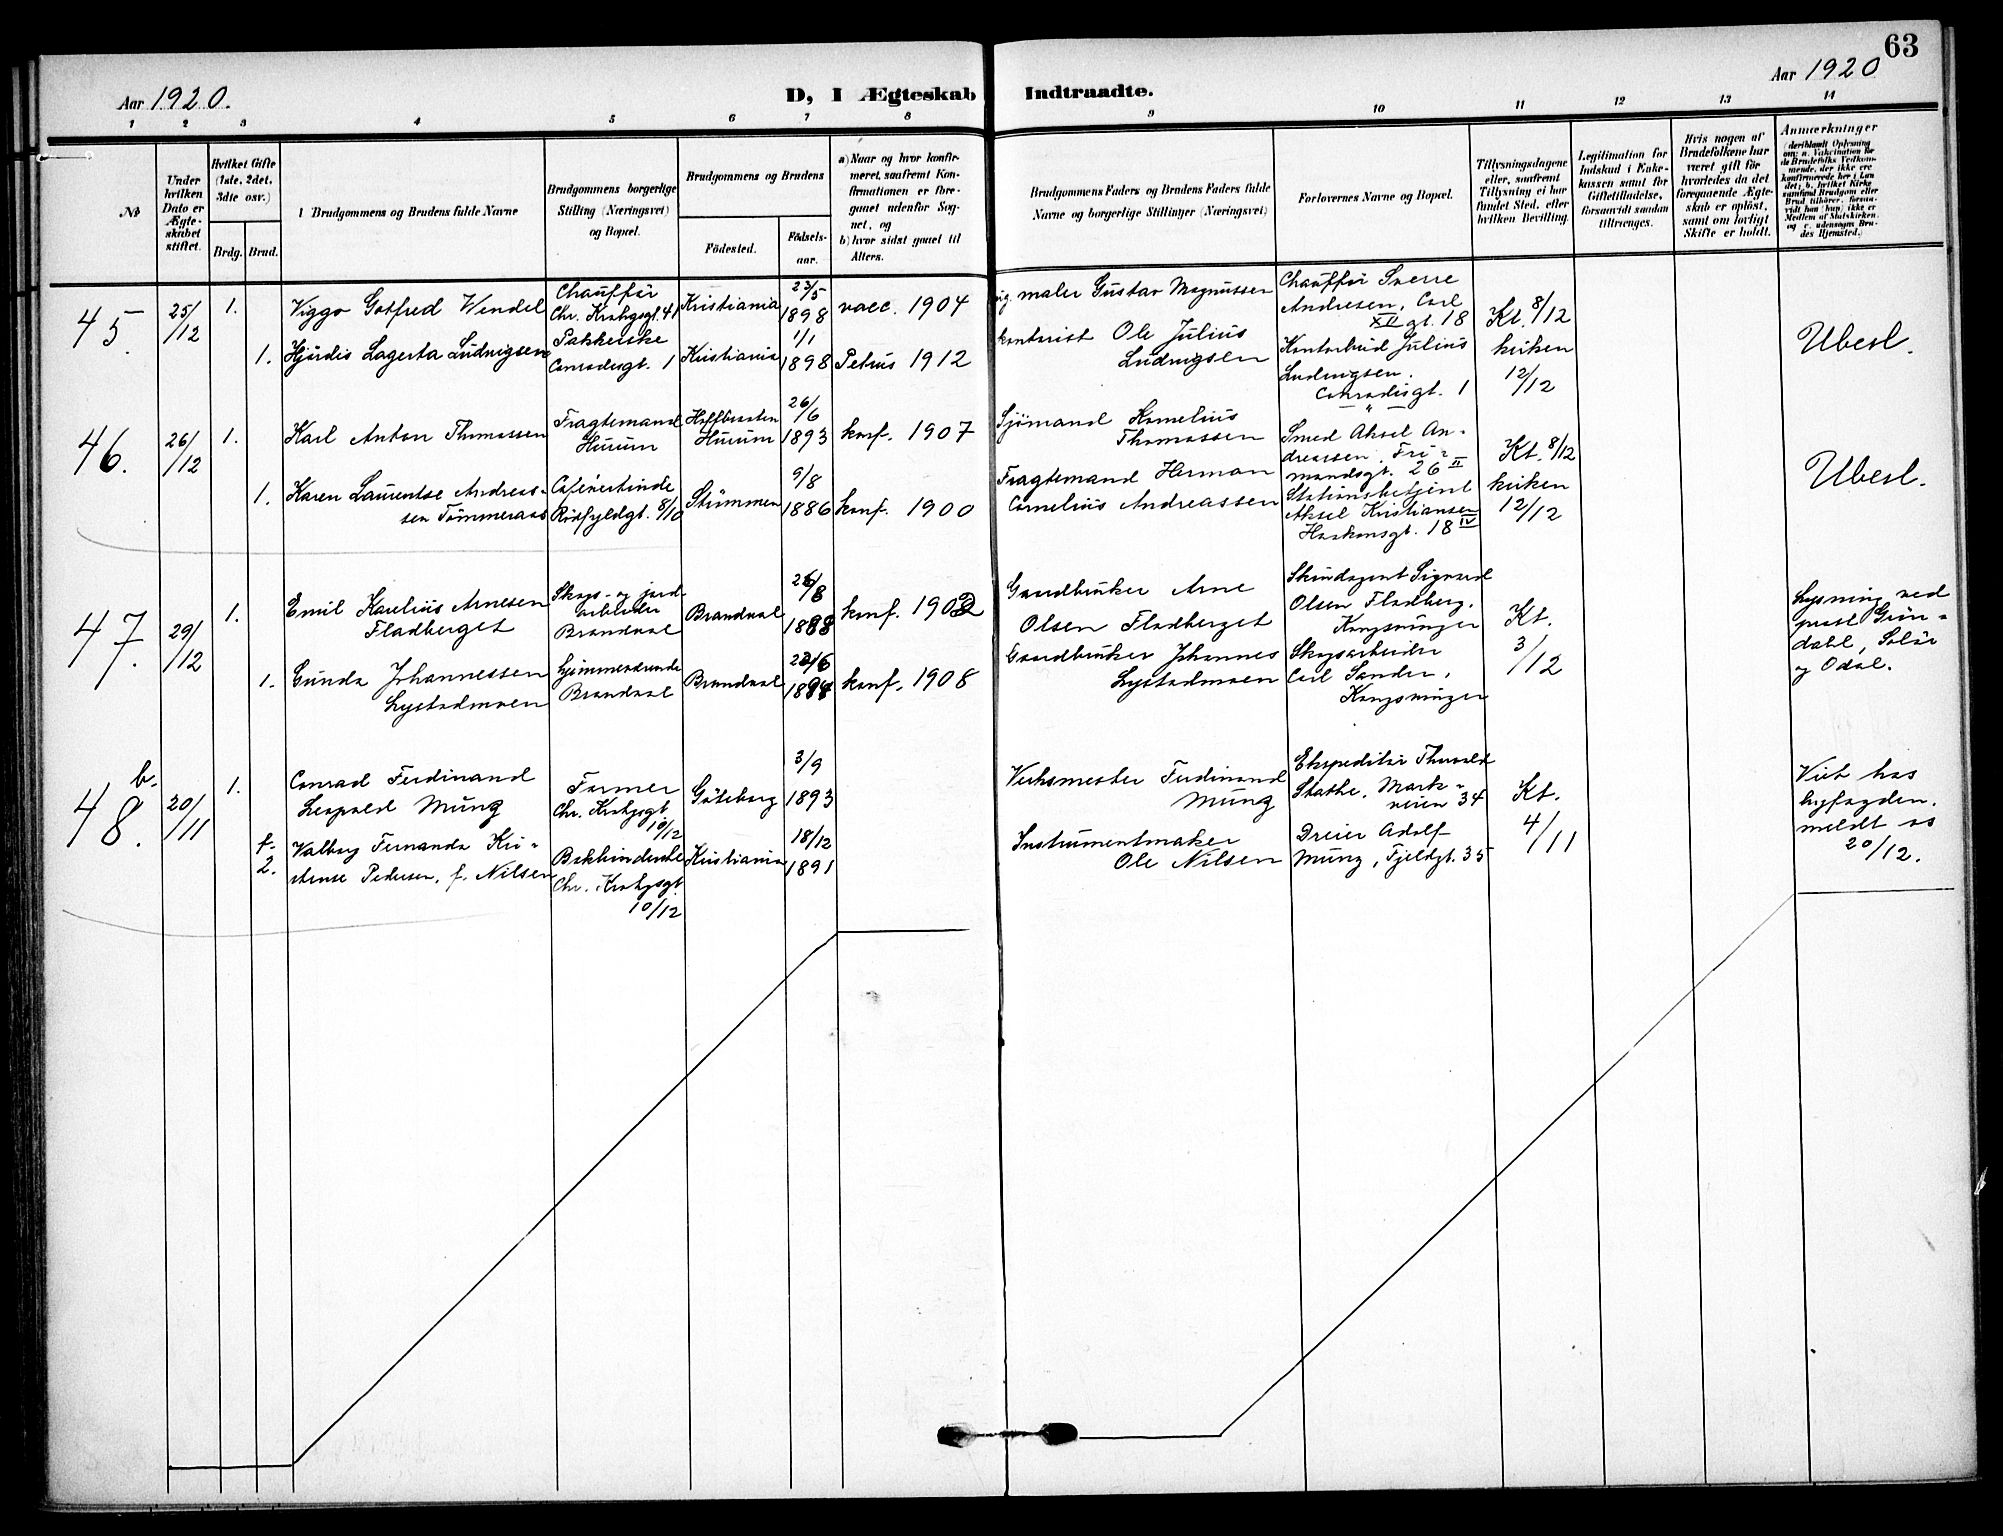 63
Aar 1920.
D, I Ægteskab Indtraadte.
Aar 1920
1 2 3 4 5 6 7 8 9 10 11 12 13 14
No
Under
hvilken
Dato er
Ægte-
skabet
stiftet.
Hvilket Gifte
(1ste, 2det,
3dte osv.)
Brdg. Brud.
Brudgommens og Brudens fulde Navne
Brudgommens borgerlige
Stilling (Næringsvei)
og Bopæl.
Brudgommens og Brudens
Födested.
Födsels-
aar.
a) Naar og hvor konfir-
meret, saafremt Kon-
firmationen er fore-
gaaet udenfor Sog-
net, og
b) hvor sidst gaaet til
Alters.
Brudgommens Faders og Brudens Faders fulde
Navne og borgerlige Stillinger (Næringsvei)
Forlovernes Navne og Bopæl.
Tillysningsdagene
eller, saafremt
Tillysning ei har
fundet Sted, efter
hvilken Bevilling.
Legitimation for
Indskud i Enke-
kassen samt for
Giftetilladelse,
forsaavidt saadan
tiltrænges.
Hvis nogen af
Brudefolkene har
været gift för
hvorledes da det
foregaaende Ægte-
skab er oplöst,
samt om lovligt
Skifte er holdt.
Anmærkninger
(deriblandt Oplysning
om: a. Vakcination for
de Brudefolks Vedkom-
mende, der ikke ere
konfirmerede her i Lan-
det; b. hvilket Kirke-
samfund Brudgom eller
Brud tilhörer, forsaa-
vidt han (hun) ikke er
Medlem af Statskirken,
og c. udensogns Bru-
des Hjemsted.)
45. 25/12 1. Viggo Gotfred Wendel
Chauffør
Chr. Krohgsgt. 41
Kristiania
23/5
1898
vacc. 1904
maler Gustav Magnussen
Chauffør Sverre
Andresen, Carl
XII gt. 18
Kt. 8/12
kirken
12/12
Ubesl.
1. Hjördis Lagerta Ludvigsen
Pakkerske
Conradisgt. 1
Kristiania
1/1
1898
Petrus 1912
kontorist Ole Julius
Ludvigsen
Kontorbud Julius
Ludvigsen.
Conradisgt. 1
46. 26/12 1. Karl Anton Thomassen
Fragtemand
Hurum
Hurum
26/6
1893
konf. 1907
Sjömand Kornelius
Thomassen
Smed Aksel An-
dreassen, Fri-
mandsgt. 26 II
Kt. 8/12
kirken
12/12
Ubesl.
1. Karen Laurentse Andreas-
sen Tömmeraas
Caféværtinde
Rödfyldgt. 8/10
Strömmen
9/8
1886
konf. 1900
Fragtemand Herman
Cornelius Andreassen
Stationsbetjent
Aksel Kristiansen
Haakonsgt. 18 IV
47. 29/12 1. Emil Karelius Arnesen
Fladberget
Skogs- og jord-
arbeider
Brandval
Brandval
konf. 1902
Gaardbruker Arne
Olsen Fladberget
Skindagent Sigvard
Olsen Fladberg.
Kongsvinger
Kt.
3/12
Lysning ved
prost Grön-
dahl, Solör
og Odal.
1. Gunda Johannessen
Lystadmoen
hjemmeværende
Brandval
Brandval
konf. 1908
Gaardbruker Johannes
Lystadmoen
Skogsarbeider
Carl Sander,
Kongsvinger
48. b. 20/11 1. Conrad Ferdinand
Leopold Münz
Former
Chr. Krohgsgt.
10/12
Göteborg
3/9
1893
Verksmester Ferdinand
Münz
Ekspeditör Thorvald
Stathe, Mark-
veien 34
Kt.
4/11
Viet hos
byfogden.
meldt os
20/12.
f. 2. Valborg Fernanda Kri-
stense Pedersen, f. Nilsen
Bokbinderske
Chr. Krohgsgt.
10/12
Kristiania
18/12
1891
Instrumentmaker
Ole Nilsen
Dreier Adolf
Münz, Fjeldgt. 35